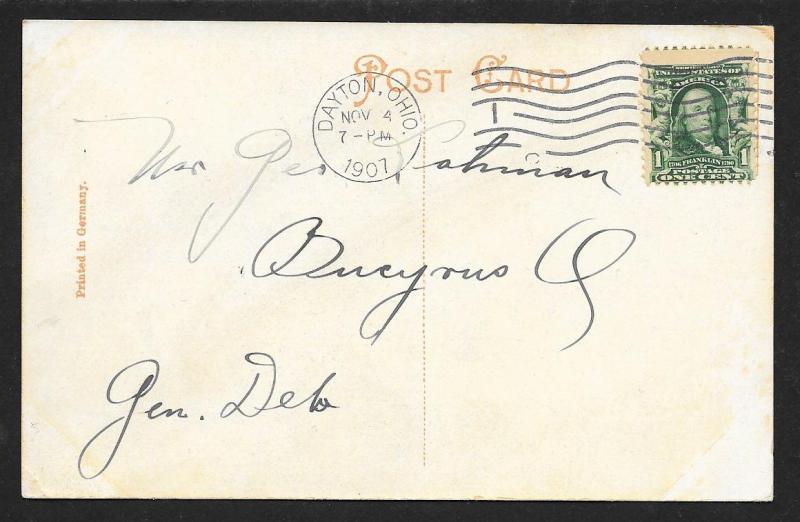 POST CARD
DAYTON, OHIO.
NOV 4
7-PM
1907
1
UNITED STATES OF
AMERICA
1706 FRANKLIN 1790
1 1
POSTAGE
ONE CENT
Geo.
Bucyrus O
Gen. Delv
Printed in Germany.